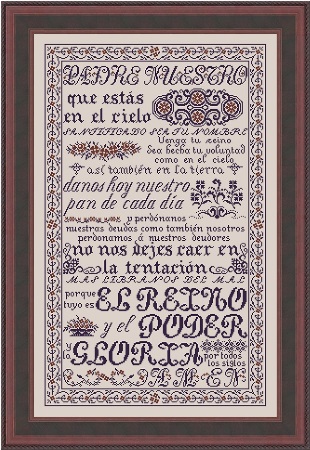 PADRE NUESTRO
que estás
en el cielo
SANTIFICADO SEA TU NOMBRE
Venga tu reino
Sea hecha tu voluntad
como en el cielo
así también en la tierra
danos hoy nuestro
pan de cada día
y perdónanos
nuestras deudas como también nosotros
perdonamos á nuestros deudores
no nos dejes caer en
la tentación
MAS LIBRANOS DEL MAL
porque
tuyo es
EL REINO
y el PODER
y la
GLORIA
por todos
los siglos
AMEN